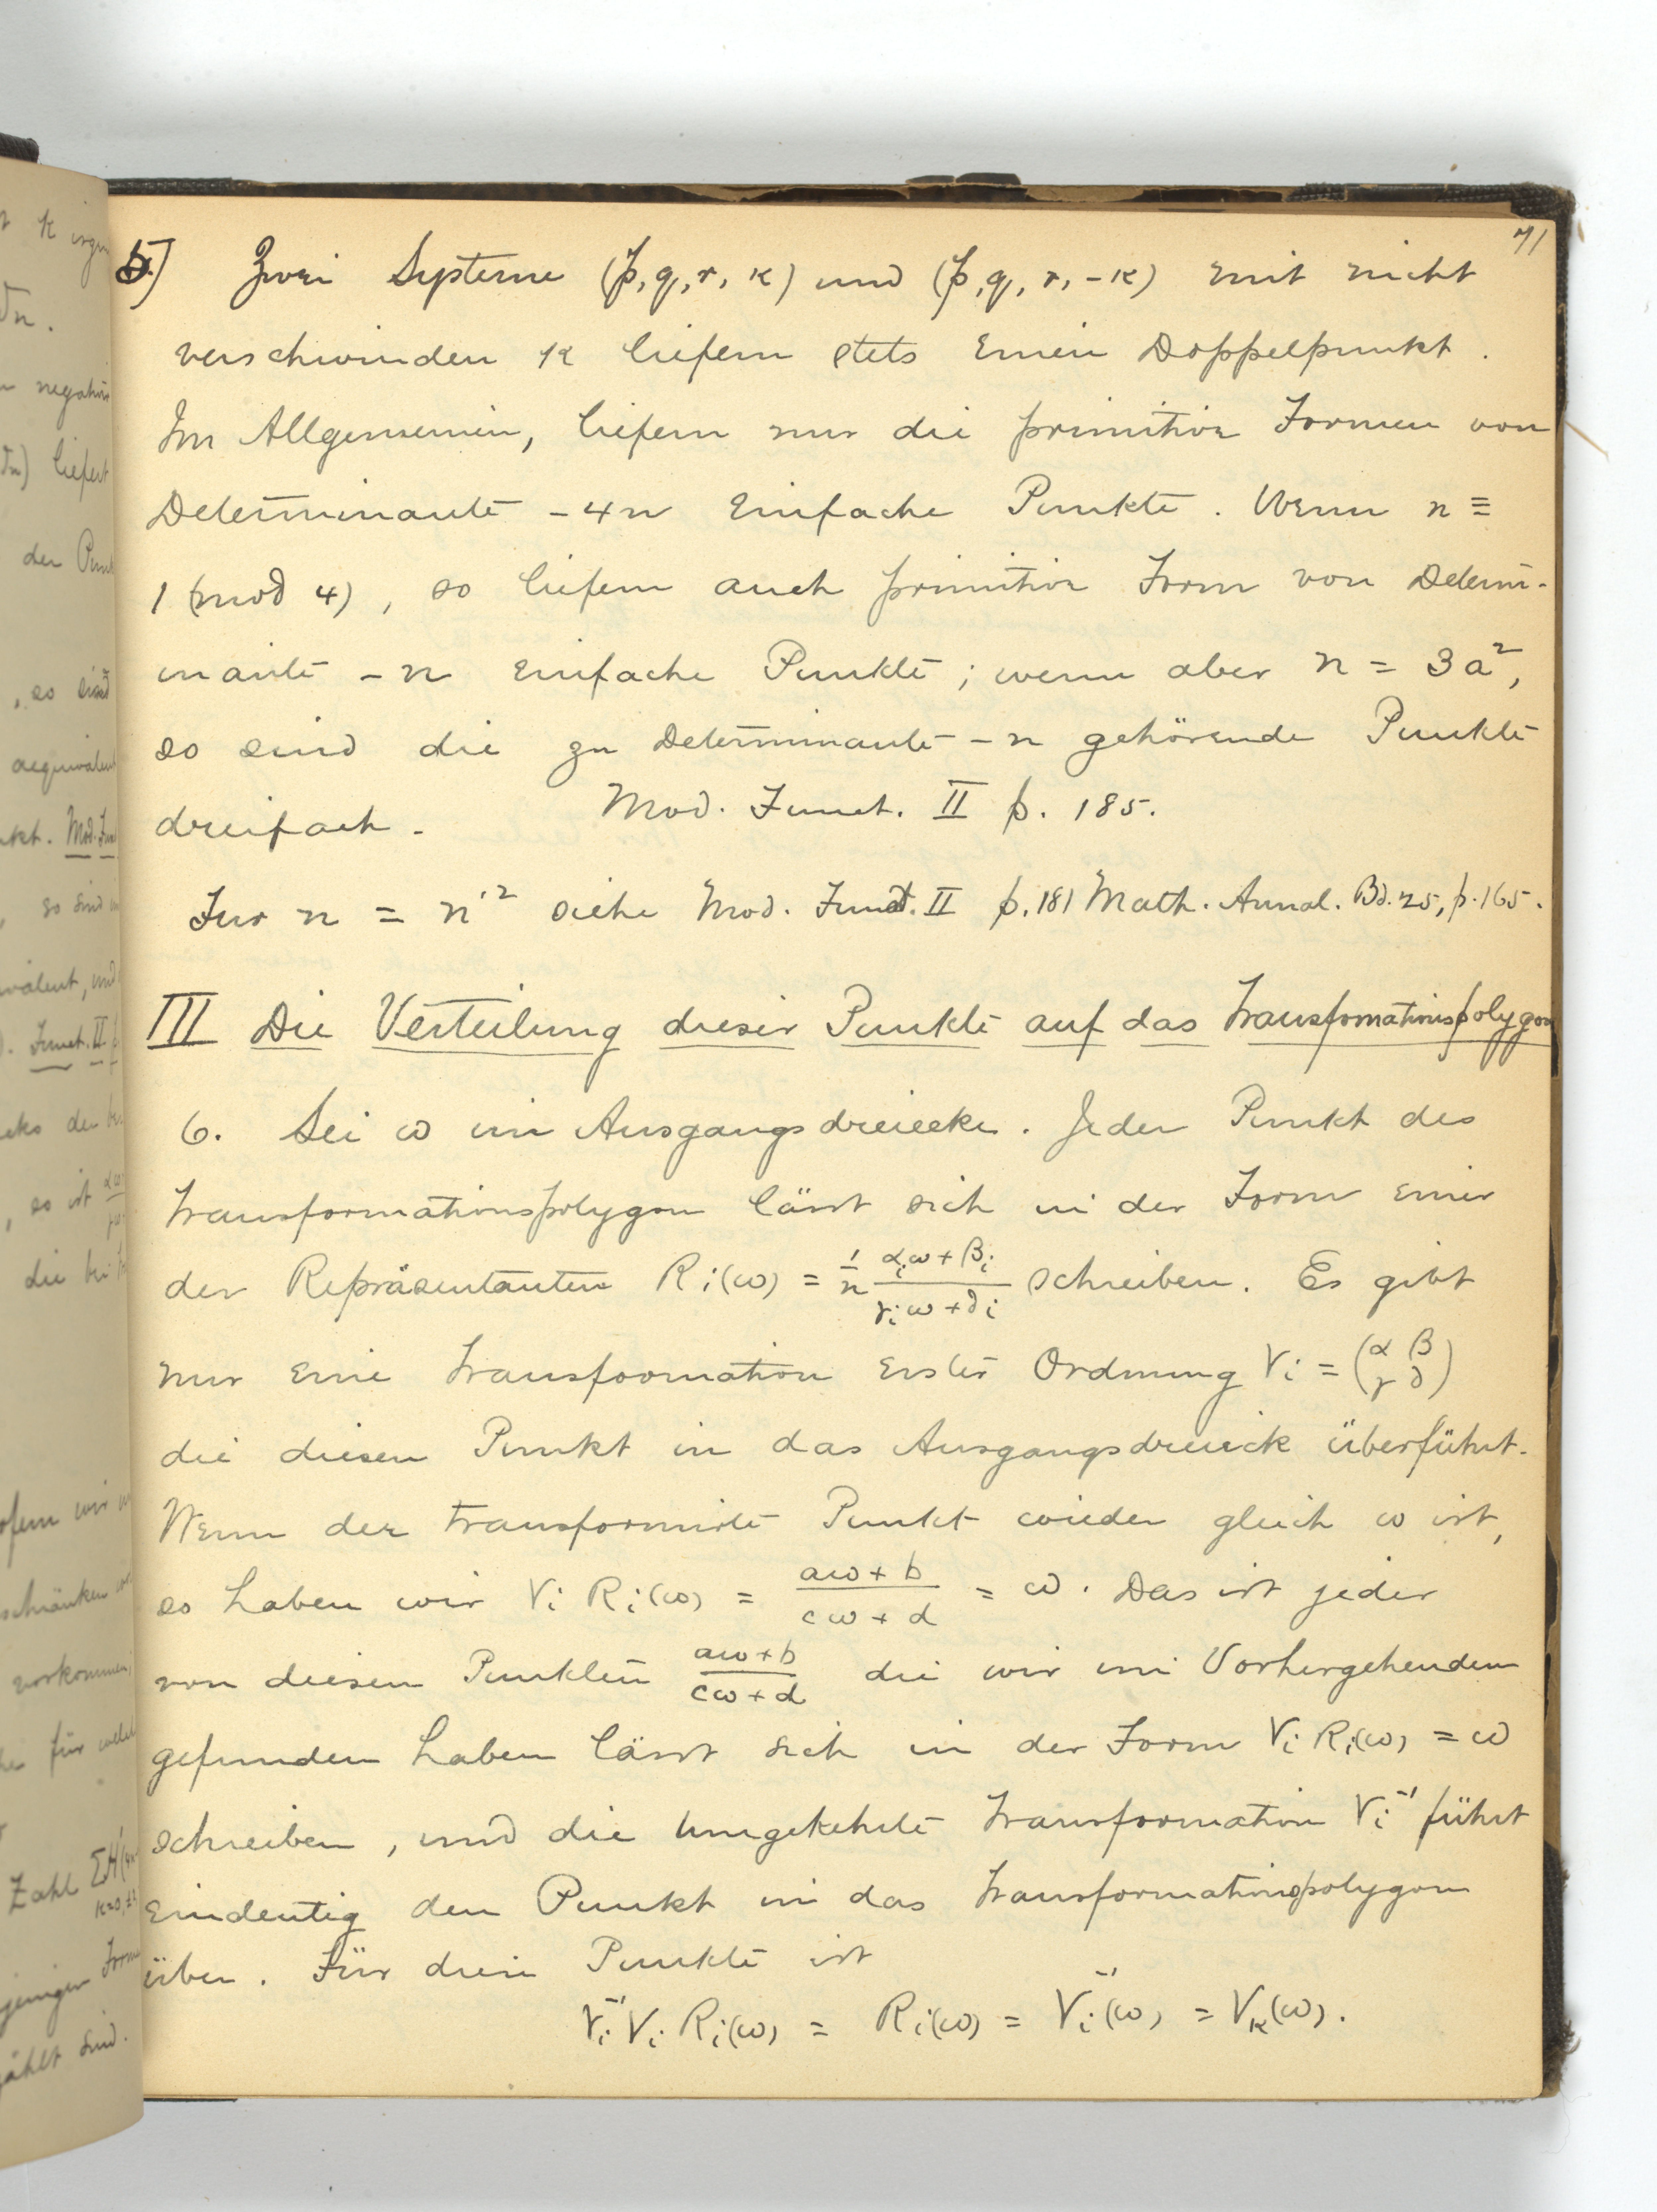 71
5.) Zwei Systeme (p, q, r, κ) und (p, q, r, -κ) mit nicht
verschwinden κ liefern stets einen Doppelpunkt.
Im Allgemeinen, liefern nur die primitive Formen von
Determinante -4n einfache Punkte. Wenn n ≡
1 (mod 4), so liefern auch primitive Form von Determi-
nante -n einfache Punkte; wenn aber n = 3a²,
so sind die zu Determinante -n gehörende Punkte
dreifach. Mod. Funct. II p. 185.
Fur n = n'² siehe Mod. Funct. II p. 181 Math. Annal. Bd. 25, p. 165.
III Die Verteilung dieser Punkte auf das Transfomationspolygon
6. Sei ω im Ausgangsdreiecke. Jeder Punkt des
Transformationspolygon lässt sich in der Form einer
der Repräsentanten Ri(ω) = 1/n (αiω + βi)/(γiω + δi) schreiben. Es gibt
nur eine Transformation erster Ordnung Vi = (α β / γ δ)
die diesen Punkt in das Ausgangsdreieck überführt.
Wenn der transformirte Punkt wieder gleich ω ist,
so haben wir Vi Ri(ω) = (aω + b)/(cω + d) = ω. Das ist jeder
von diesen Punkten (aω + b)/(cω + d) die wir im Vorhergehendem
gefunden haben lässt sich in der Form Vi Ri(ω) = ω
schreiben, und die umgekehrte Transformation Vi⁻¹ führt
eindeutig den Punkt in das Transformationspolygon
über. Für diese Punkte ist
Vi⁻¹ Vi Ri(ω) = Ri(ω) = Vi⁻¹(ω) = Vκ(ω).